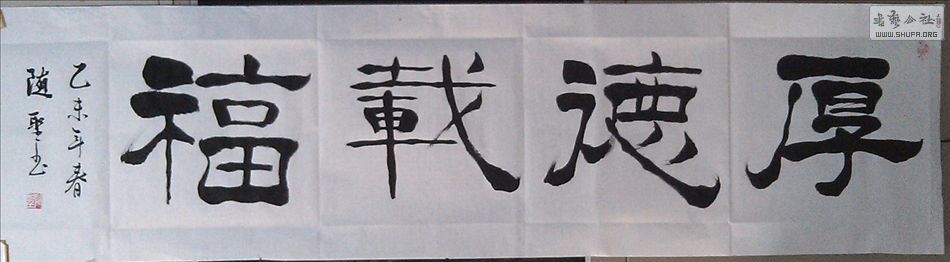 厚德載福
乙未年春
随聖书
书艺公社
WWW.SHUFA.ORG